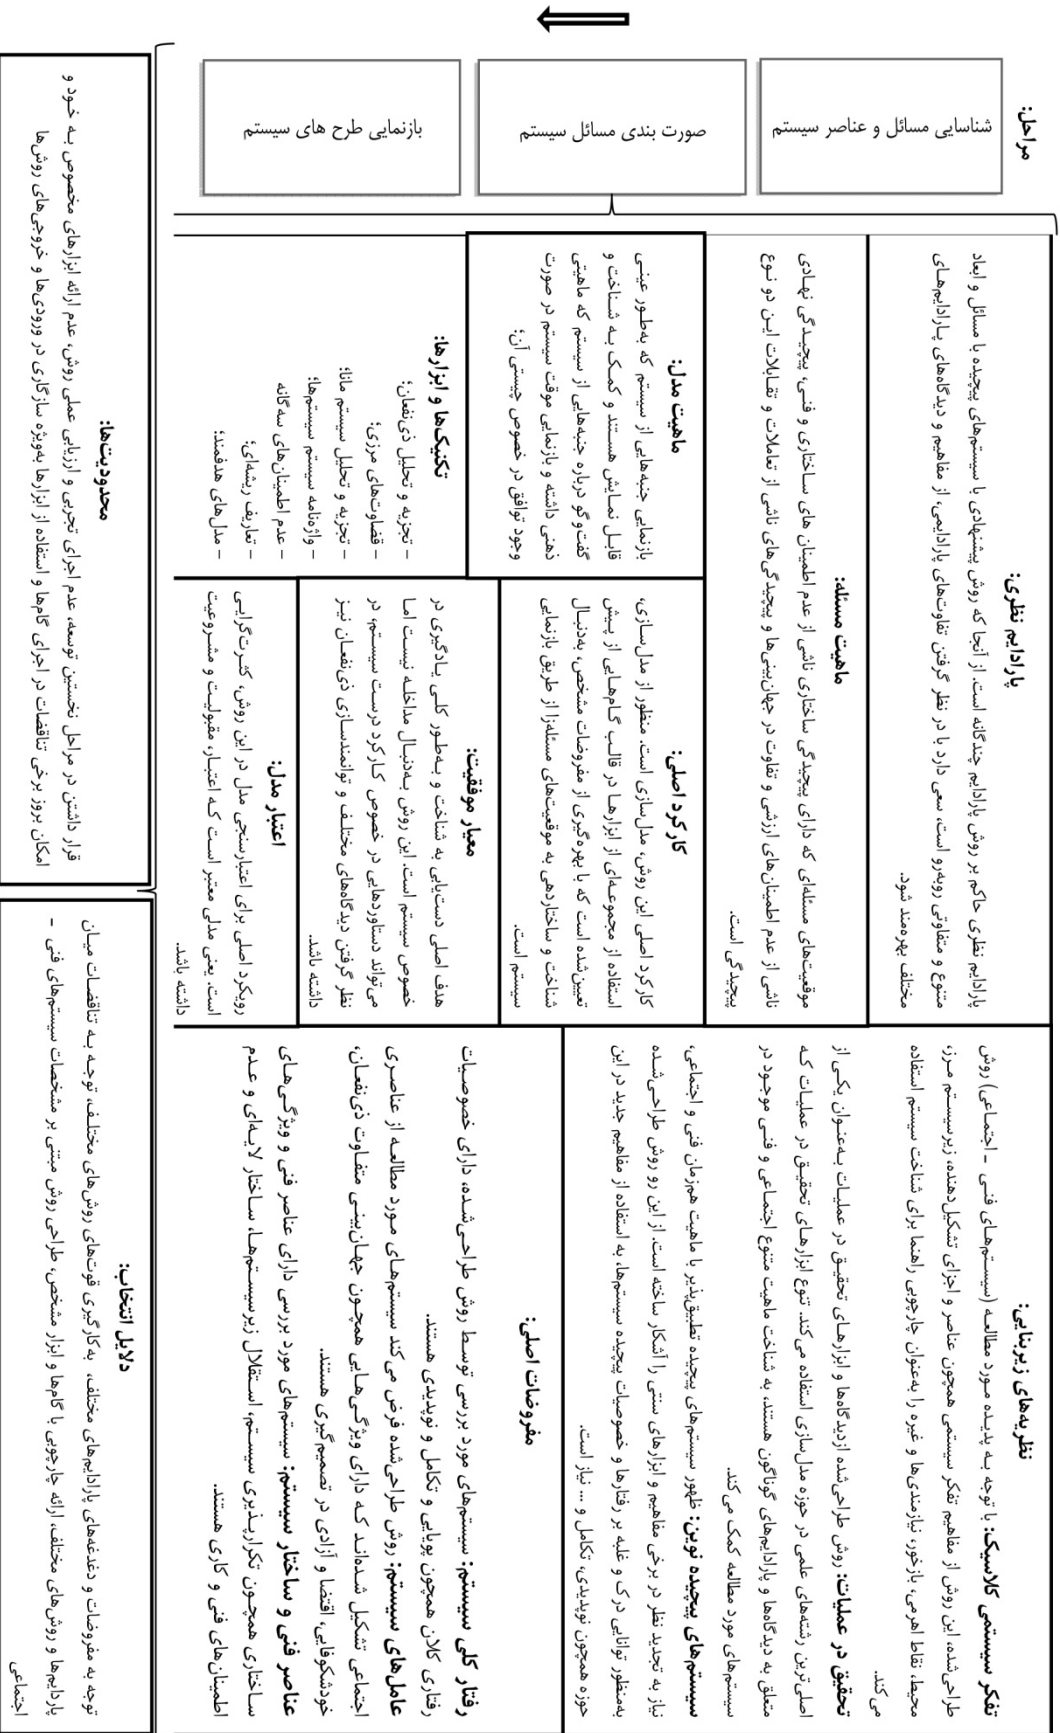 مراحل:
شناسایی مسائل و عناصر سیستم
صورت بندی مسائل سیستم
بازنمایی طرح های سیستم
پارادایم نظری:
پارادایم نظری حاکم بر روش پارادایم چندگانه است. از آنجا که روش پیشنهادی با سیستم‌های پیچیده با مسائل و ابعاد
متنوع و متفاوتی روبه‌رو است، سعی دارد با در نظر گرفتن تفاوت‌های پارادایمی، از مفاهیم و دیدگاه‌های پارادایم‌های
مختلف بهره‌مند شود.
ماهیت مسئله:
موقعیت‌های مسئله‌ای که دارای پیچیدگی ساختاری ناشی از عدم اطمینان های ساختاری و فنی، پیچیدگی نهادی
ناشی از عدم اطمینان‌های ارزشی و تفاوت در جهان‌بینی‌ها و پیچیدگی‌های ناشی از تعاملات و تقابلات این دو نوع
پیچیدگی است.
ماهیت مدل:
بازنمایی جنبه‌هایی از سیستم که به‌طور عینی
قابل نمایش هستند و کمک به شناخت و
گفت‌وگو درباره جنبه‌هایی از سیستم که ماهیتی
ذهنی داشته و بازنمایی موقت سیستم در صورت
وجود توافق در خصوص چیستی آن؛
کارکرد اصلی:
کارکرد اصلی این روش، مدل‌سازی است. منظور از مدل‌سازی،
استفاده از مجموعه‌ای از ابزارها در قالب گام‌هایی از پیش
تعیین‌شده است که با بهره‌گیری از مفروضات مشخص، به‌دنبال
شناخت و ساختاردهی به موقعیت‌های مسئله‌زا از طریق بازنمایی
سیستم است.
تکنیک‌ها و ابزارها:
- تجزیه و تحلیل ذی‌نفعان؛
- قضاوت‌های مرزی؛
- تجزیه و تحلیل سیستم مانا؛
- واژه‌نامه سیستم سیستم‌ها؛
- عدم اطمینان‌های سه‌گانه
- تعاریف ریشه‌ای؛
- مدل‌های هدفمند؛
معیار موفقیت:
هدف اصلی دست‌یابی به شناخت و به‌طور کلی یادگیری در
خصوص سیستم است. این روش به‌دنبال مداخله نیست اما
می‌تواند دستاوردهایی در خصوص کارکرد درست سیستم، در
نظر گرفتن دیدگاه‌های مختلف و توانمندسازی ذی‌نفعان نیز
داشته باشد.
اعتبار مدل:
رویکرد اصلی برای اعتبارسنجی مدل در این روش، کثرت‌گرایی
است. یعنی مدلی معتبر است که اعتبار، مقبولیت و مشروعیت
داشته باشد.
نظریه‌های زیربنایی:
تفکر سیستمی کلاسیک: با توجه به پدیده مورد مطالعه (سیستم‌های فنی - اجتماعی) روش
طراحی‌شده، این روش از مفاهیم تفکر سیستمی همچون عناصر و اجزای تشکیل‌دهنده، زیرسیستم مرز،
محیط، نقاط اهرمی، بازخور، نیازمندی‌ها و غیره را به‌عنوان چارچوبی راهنما برای شناخت سیستم استفاده
می‌کند.
تحقیق در عملیات: روش طراحی‌شده ازدیدگاه‌ها و ابزارهای تحقیق در عملیات به‌عنوان یکی از
اصلی‌ترین رشته‌های علمی در حوزه مدل‌سازی استفاده می‌کند. تنوع ابزارهای تحقیق در عملیات که
متعلق به دیدگاه‌ها و پارادایم‌های گوناگون هستند، به شناخت ماهیت متنوع اجتماعی و فنی موجود در
سیستم‌های مورد مطالعه کمک می‌کند.
سیستم‌های پیچیده نوین: ظهور سیستم‌های پیچیده تطبیق‌پذیر با ماهیت هم‌زمان فنی و اجتماعی،
نیاز به تجدید نظر در برخی مفاهیم و ابزارهای سنتی را آشکار ساخته است. از این رو روش طراحی‌شده
به‌منظور توانایی درک و غلبه بر رفتارها و خصوصیات پیچیده سیستم‌ها، به استفاده از مفاهیم جدید در این
حوزه همچون نوپدیدی، تکامل و ... نیاز است.
مفروضات اصلی:
رفتار کلی سیستم: سیستم‌های مورد بررسی توسط روش طراحی‌شده، دارای خصوصیات
رفتاری کلان همچون پویایی و تکامل و نوپدیدی هستند.
عامل‌های سیستم: روش طراحی‌شده فرض می‌کند سیستم‌های مورد مطالعه از عناصری
اجتماعی تشکیل شده‌اند که دارای ویژگی‌هایی همچون جهان‌بینی متفاوت ذی‌نفعان،
خودشکوفایی، اقتضا و آزادی در تصمیم‌گیری هستند.
عناصر فنی و ساختار سیستم: سیستم‌های مورد بررسی دارای عناصر فنی و ویژگی‌های
ساختاری همچون تکرارپذیری سیستم، استقلال زیرسیستم‌ها، ساختار لایه‌ای و عدم
اطمینان‌های فنی و کاری هستند.
محدودیت‌ها:
قرار داشتن در مراحل نخستین توسعه، عدم اجرای تجربی و ارزیابی عملی روش، عدم ارائه ابزارهای مخصوص به خود و
امکان بروز برخی تناقضات در اجرای گام‌ها و استفاده از ابزارها به‌ویژه سازگاری در ورودی‌ها و خروجی‌های روش‌ها
دلایل انتخاب:
توجه به مفروضات و دغدغه‌های پارادایم‌های مختلف، به‌کارگیری قوت‌های روش‌های مختلف، توجه به تناقضات میان
پاردایم‌ها و روش‌های مختلف، ارائه چارچوبی با گام‌ها و ابزار مشخص، طراحی روش مبتنی بر مشخصات سیستم‌های فنی -
اجتماعی